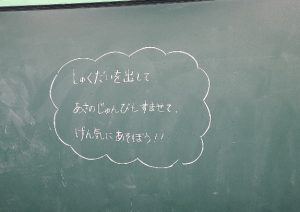 しゅくだいを出して
あさのじゅんびをすませて、
げん気にあそぼう!!